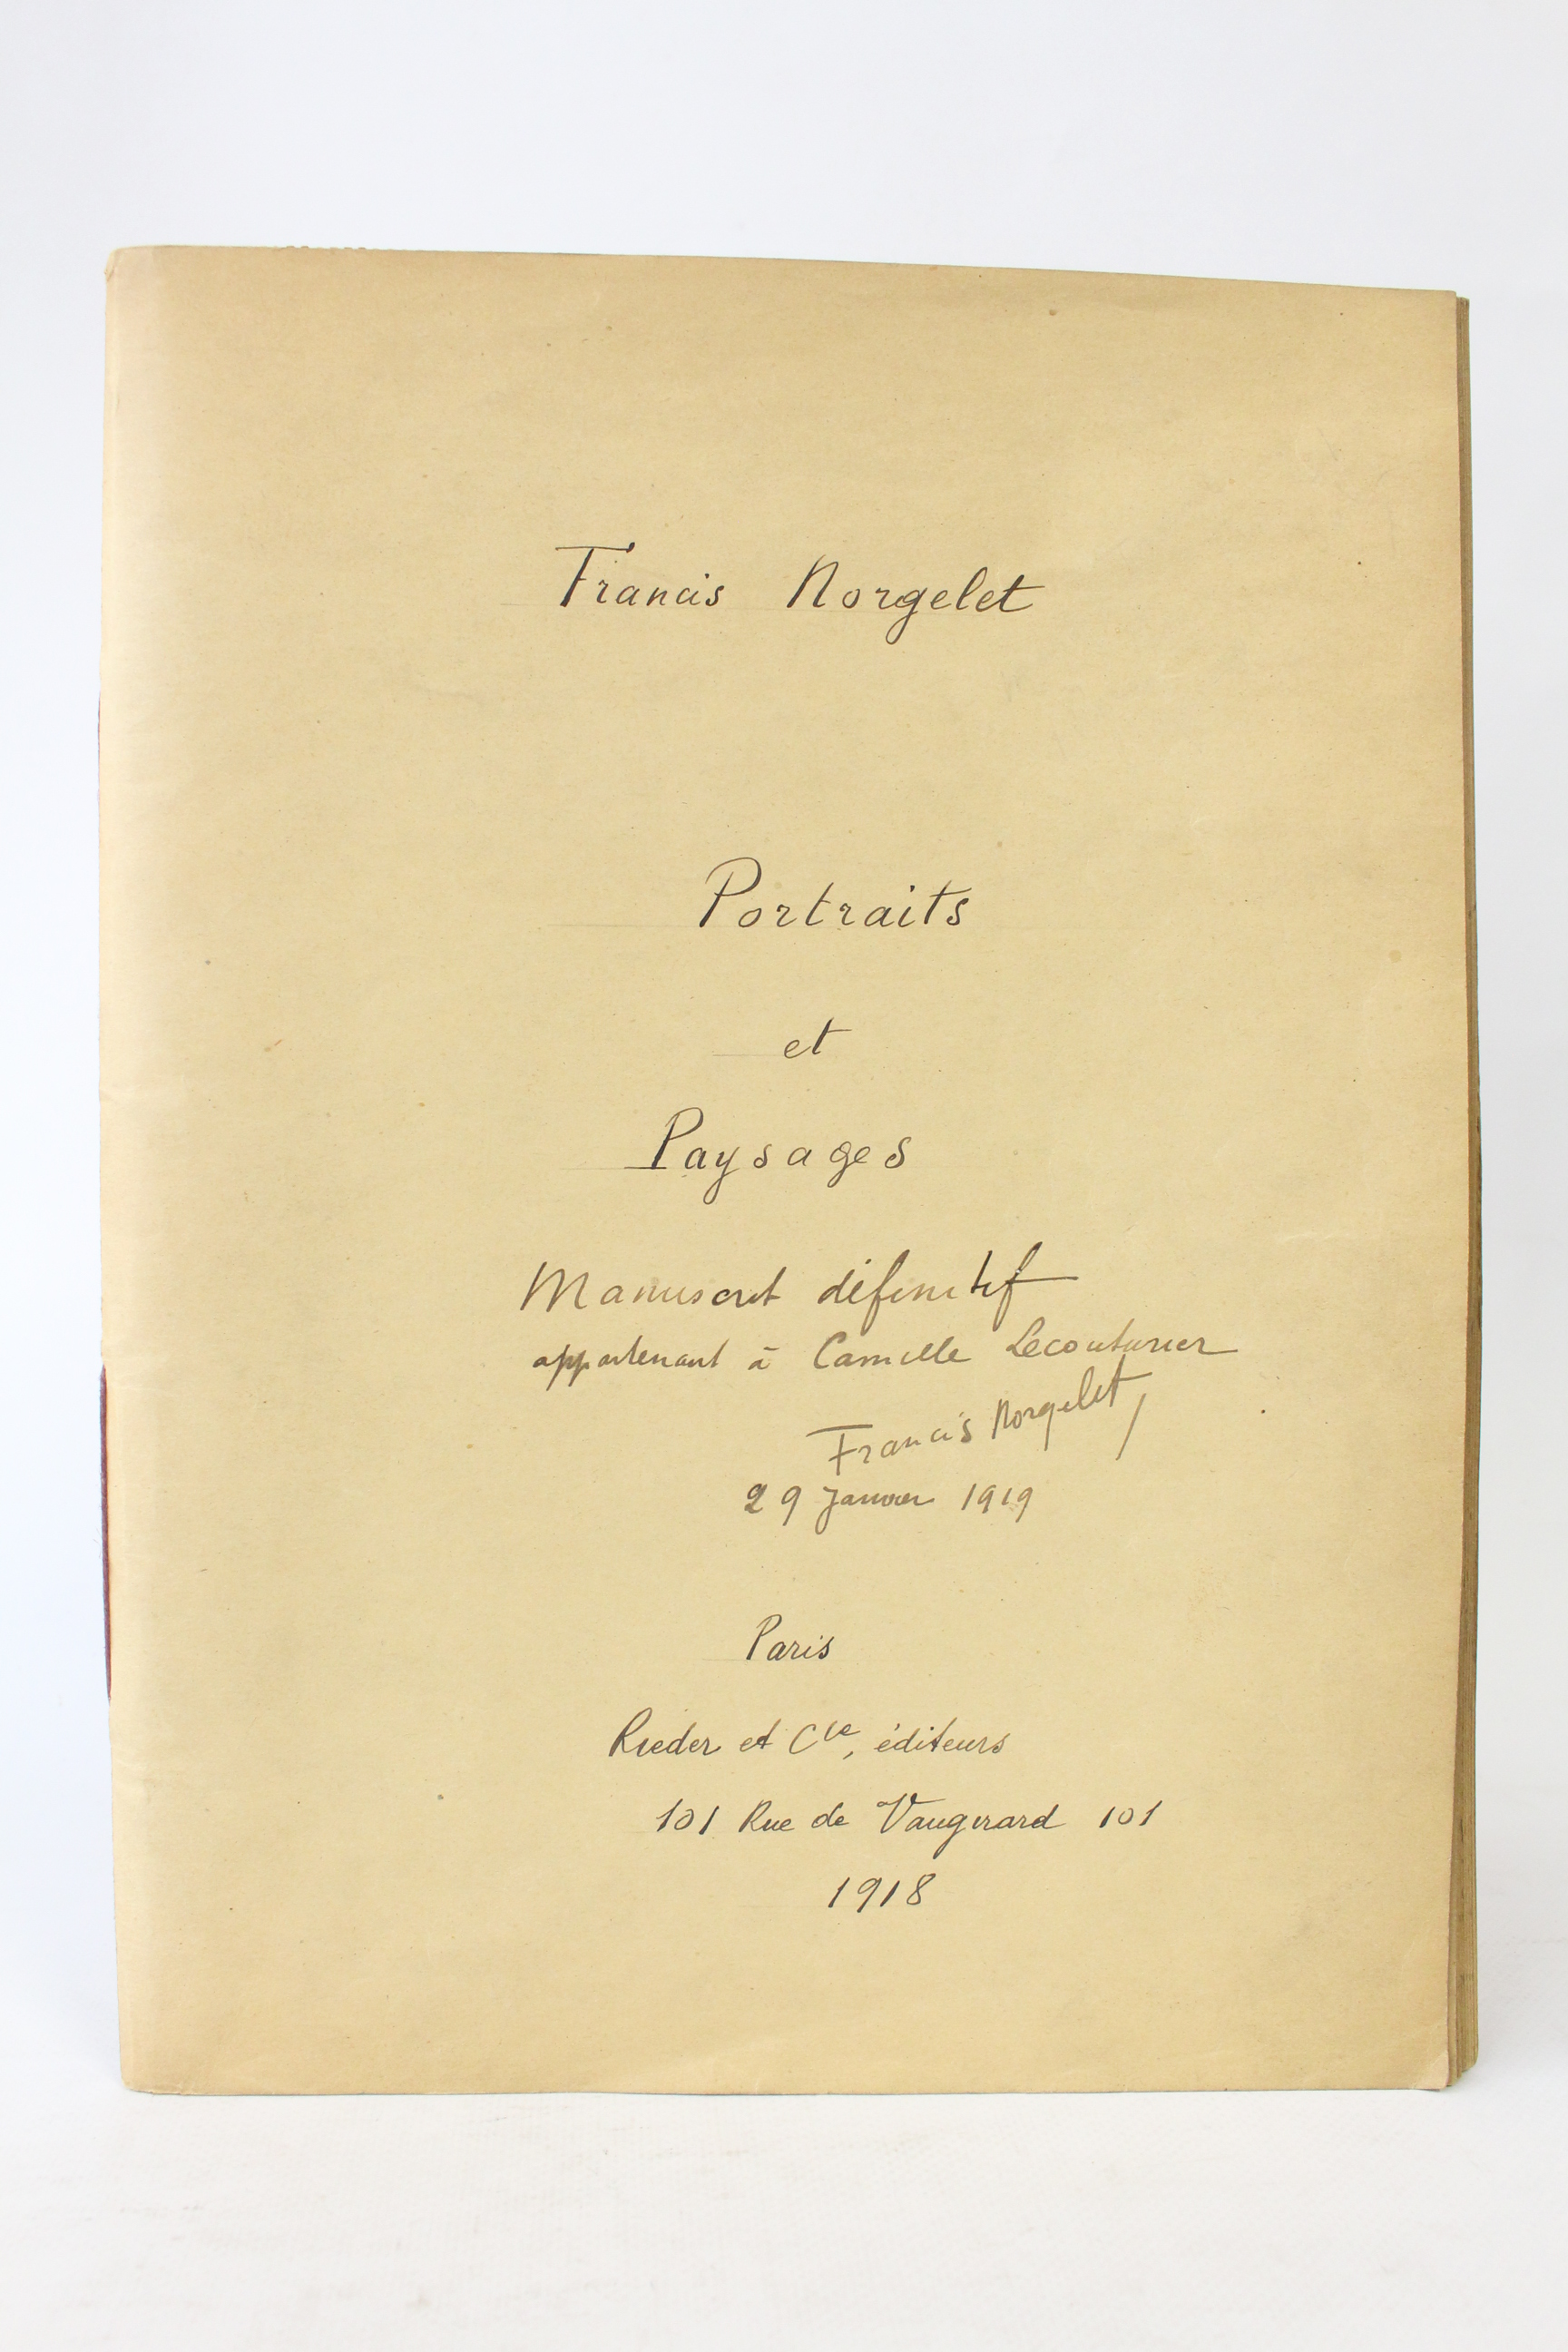 Francis Norgelet
Portraits
et
Paysages
Manuscrit définitif
appartenant à Camille Lecouturier
Francis Norgelet
29 Janvier 1919
Paris
Rieder et Cie, éditeurs
101 Rue de Vaugirard 101
1918